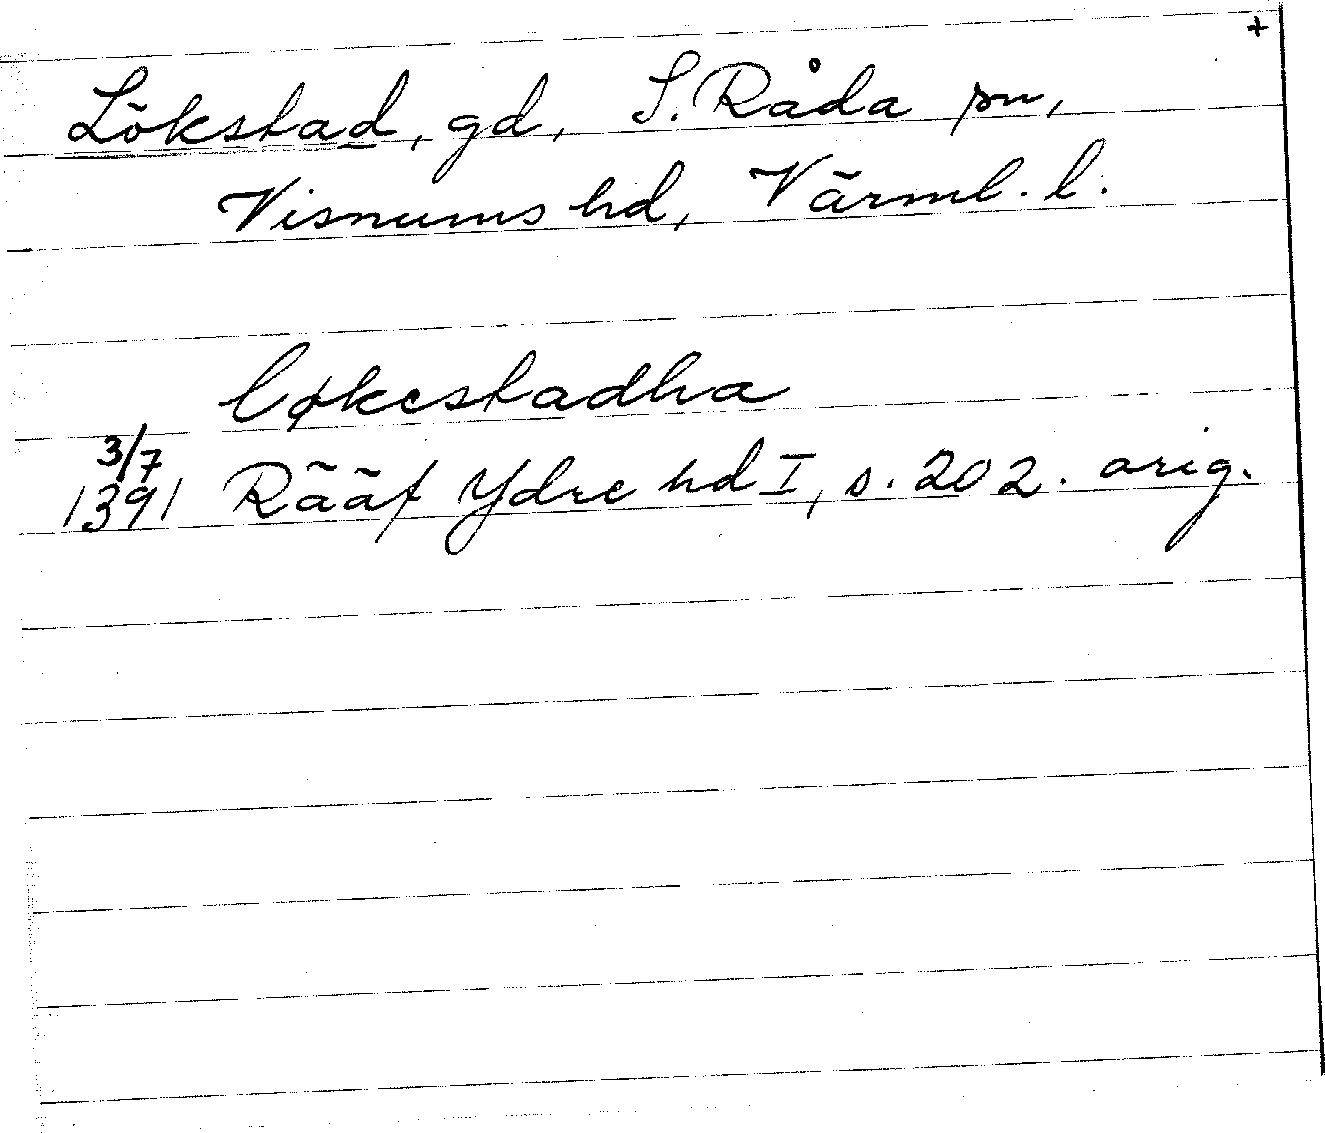 +
Lökstad, gd, S. Råda sn,
Visnums hd, Värml. l.
løkestadha
3/7
1391 Rääf Ydre hd I, s. 202. orig.